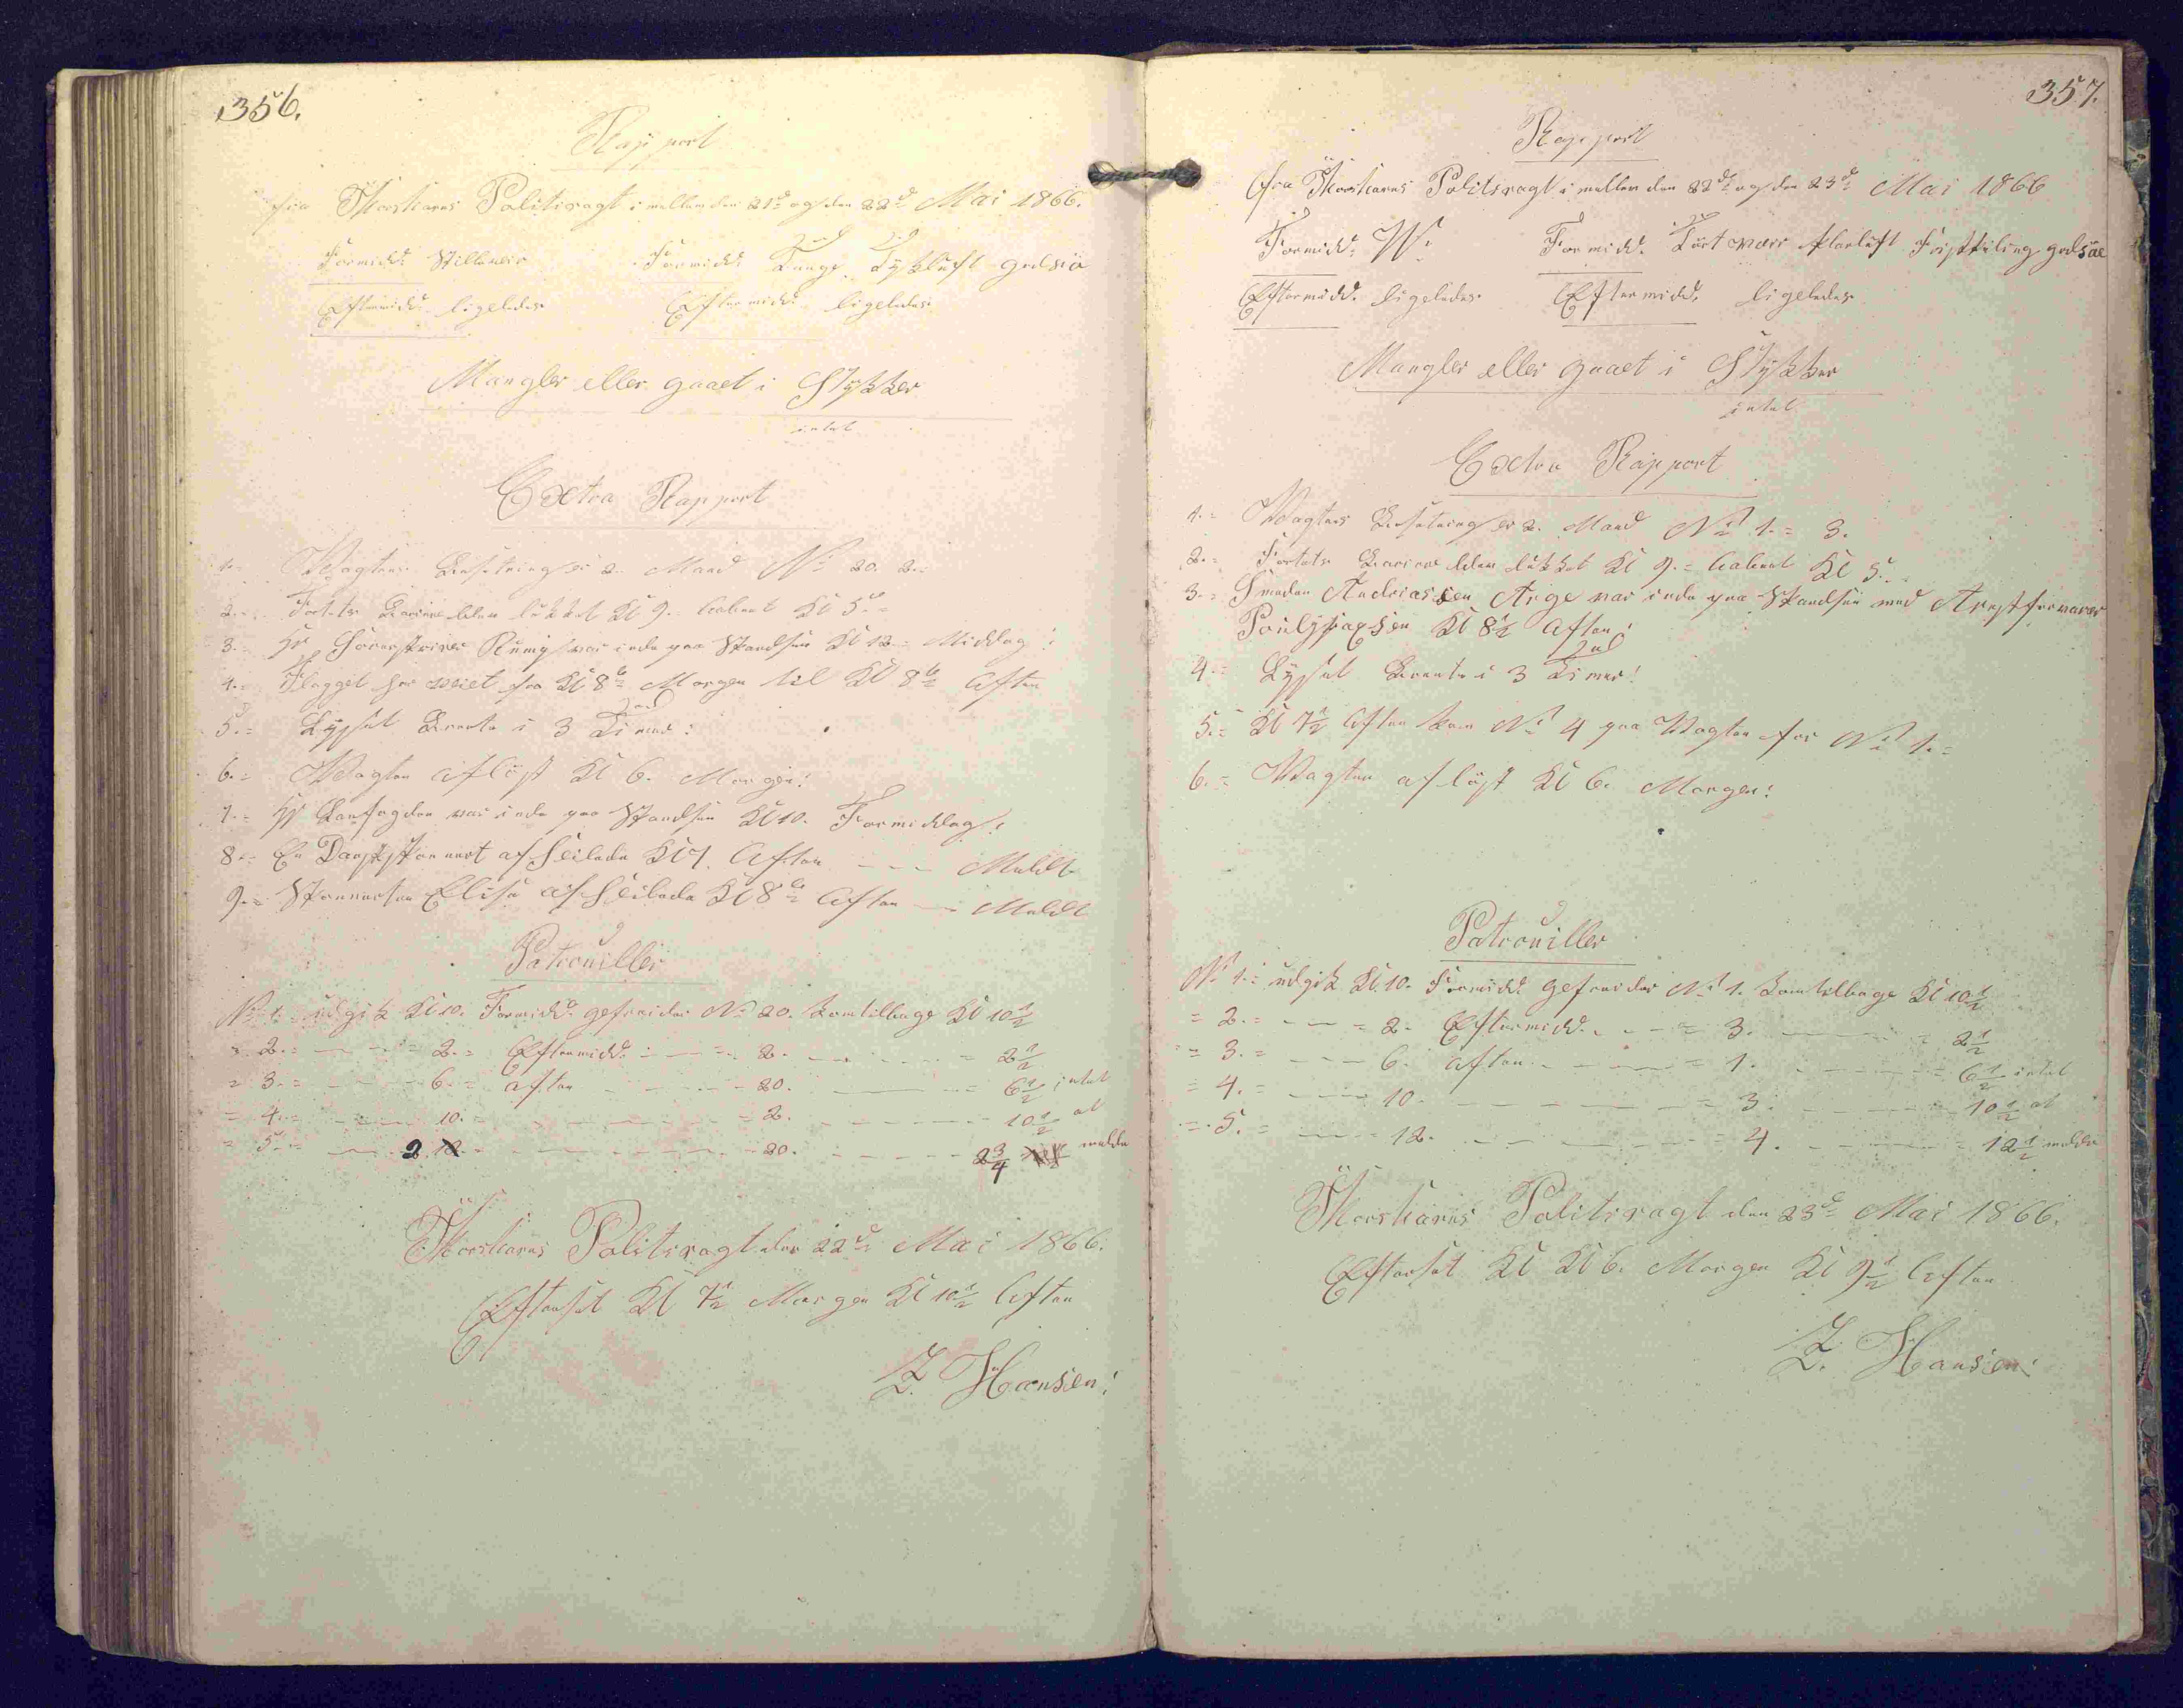 356.
Rapport
fra Thorshavns Politivagt imellem den 21de og den 22de Mai 1866.
Formidd: Stilleveir Formidd: Taage Tykluft godsiø
Eftermidd: ligeledes Eftermidd: ligeledes
Mangler eller gaaet i Stykker
intet
Extra Rapport
1.= Vagtens Besætning er 2. Mand No 20. 2.=
2.= Fortets Barriere blev lukket Kl 9.= aabnet Kl 5.=
3.= Hr Sorenskriver var inde paa Skandsen Kl 12= Middag:
4.= Flagget har veiet fra Kl 8 Morgen til Kl 8 Aften
5.= Lyset brænte i 3 Timer:
6.= Vagten afløst Kl 6. Morgen:
7.= Hr Landfogden var inde paa Skandsen Kl 10. Formiddag:
8.= En Dansk Skonnert afseilede Kl 7. Aften - - - Meldt
9.= Skonnerten Elise afseilede Kl 8 Aften - Meldt
Patrouiller
No 1.= udgik Kl 10. Formidd: gefreider No 20. kom tilbage Kl 10½
= 2.= - - = 2.= Eftermidd: - - = 2. - - = 2½
= 3.= - - 6.= Aften - - 20. - - = 6½ intet
= 4.= - - 10.= - - = 2. - - 10½ at
= 5.= - - 2. - - 20. - - 2¾ melde
Thorshavns Politivagt den 22de Mai 1866.
Efterset Kl 7½ Morgen Kl 10½ Aften
Z. Hansen:
357.
Rapport
fra Thorshavns Politivagt imellem den 22de og den 23de Mai 1866
Formidd: W: Formidd. Tørt veir klarluft godsiøe
Eftermidd. ligeledes Eftermidd. ligeledes
Mangler eller gaaet i Stykker
intet
Extra Rapport
1.= Vagtens Besætning er 2. Mand No 1.= 3.
2.= Fortets Barriere blev lukket Kl 9.= aabnet Kl 5.=
3.= Smeden Andreassen Arge var inde paa Skandsen med Arrestforvarer
Poulsen Kl 8½ Aften:
4.= Lyset brænte i 3 Timer!
5.= Kl 7½ Aften kom No 4 paa Vagten for No 1.=
6.= Vagten afløst Kl 6. Morgen:
Patrouiller
No 1.= udgik Kl 10. Formidd: gefreider No 1. kom tilbage Kl 10½
= 2.= - - = 2. Eftermidd. - - = 3. - - = 2½
= 3.= - - 6. Aften - - = 1. - - = 6½ intet
= 4.= - - 10. - - = 3: - - = 10½ at
= 5.= - - 12. - - = 4. - - = 12½ melde
Thorshavns Politivagt den 23de Mai 1866.
Efterset Kl Kl 6. Morgen Kl 9½ Aften
Z. Hansen: